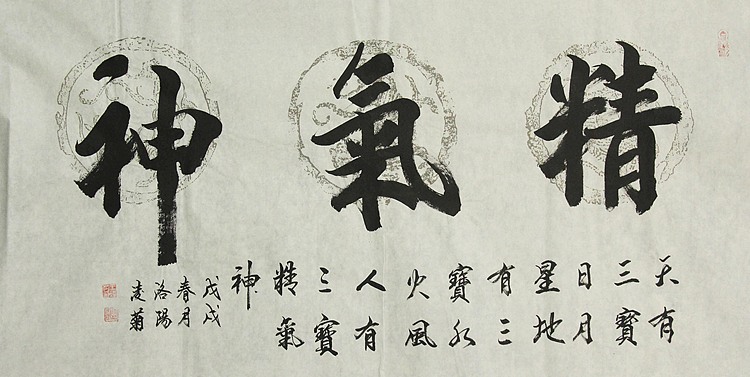 精氣神
天有
三寶
日月
星地
有三
寶水
火風
人有
三寶
精氣
神
戊戌
春月
洛陽
凌菊